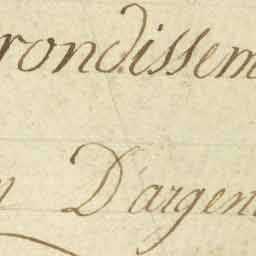 rondissem
n D'argen